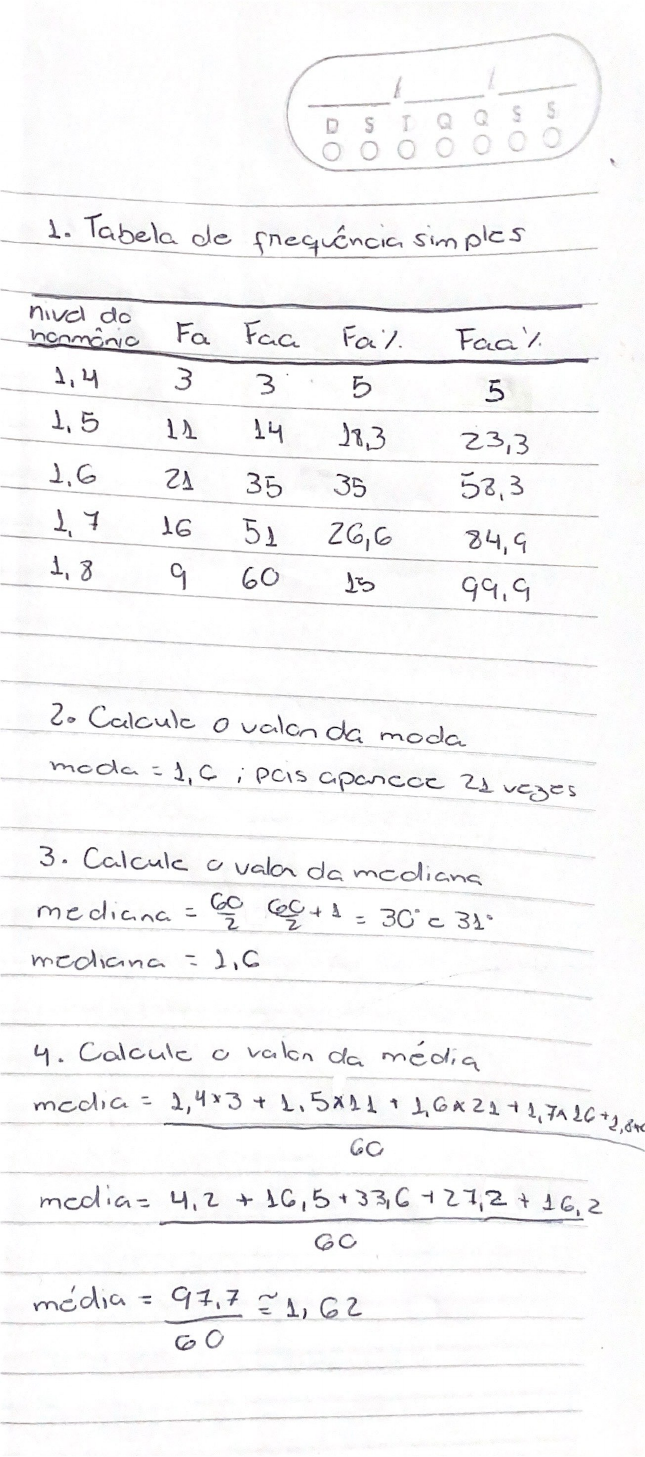 D S T Q Q S S
1. Tabela de frequência simples
nivel do
hormônio Fa Faa Fa% Faa%
1,4 3 3 5 5
1,5 11 14 18,3 23,3
1,6 21 35 35 58,3
1,7 16 51 26,6 84,9
1,8 9 60 15 99,9
2. Calcule o valor da moda
moda = 1,6 ; pois aparece 21 vezes
3. Calcule o valor da mediana
mediana = 60/2 60/2 + 1 = 30° e 31°
mediana = 1,6
4. Calcule o valor da média
media = 1,4x3 + 1,5x11 + 1,6x21 + 1,7x16 + 1,8x
60
media = 4,2 + 16,5 + 33,6 + 27,2 + 16,2
60
média = 97,7 ≅ 1,62
60